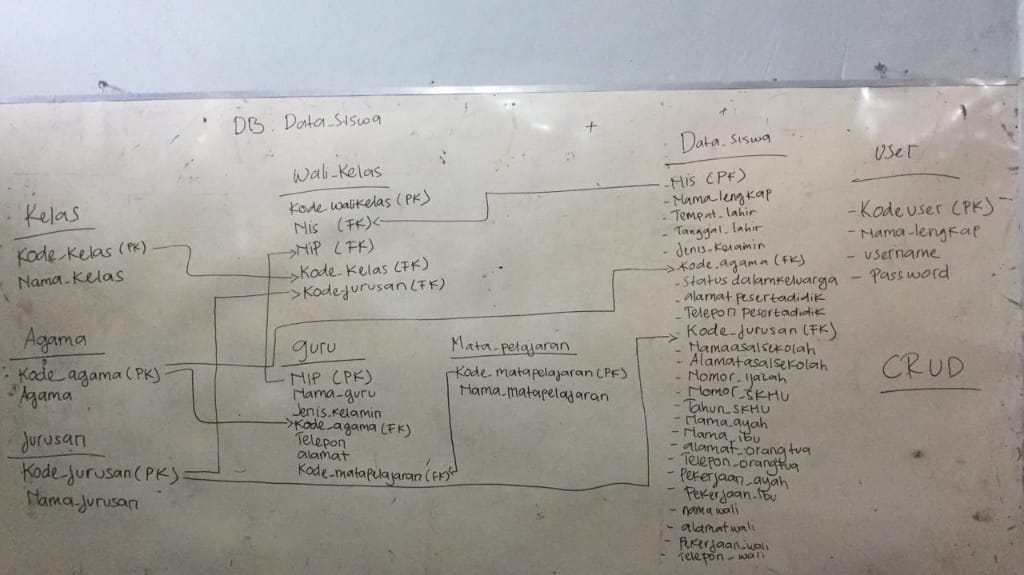 DB. Data_Siswa
Kelas
Kode_Kelas (PK)
Nama_Kelas
Agama
Kode_agama (PK)
Agama
Jurusan
Kode_Jurusan (PK)
Nama_Jurusan
Wali_Kelas
Kode_walikelas (PK)
Nis (FK)
NiP (FK)
Kode_Kelas (FK)
Kode_Jurusan (FK)
guru
NIP (PK)
Nama_guru
Jenis_kelamin
Kode_agama (FK)
Telepon
alamat
Kode_matapelajaran (FK)
Mata_pelajaran
Kode_matapelajaran (PK)
Nama_matapelajaran
Data_Siswa
- Nis (PK)
- Nama_lengkap
- Tempat_lahir
- Tanggal_lahir
- Jenis_Kelamin
- Kode_agama (FK)
- Status dalamkeluarga
- alamat pesertadidik
- Telepon pesertadidik
- Kode_Jurusan (FK)
- Namaasalsekolah
- Alamatasalsekolah
- Nomor_ijazah
- Nomor_SKHU
- Tahun_SKHU
- Nama_ayah
- Nama_ibu
- alamat_orangtua
- Telepon_orangtua
- Pekerjaan_ayah
- Pekerjaan_Ibu
- nama wali
- alamat wali
- Pekerjaan_wali
- Telepon_wali
User
- Kode user (PK)
- Nama_lengkap
- username
- Password
CRUD